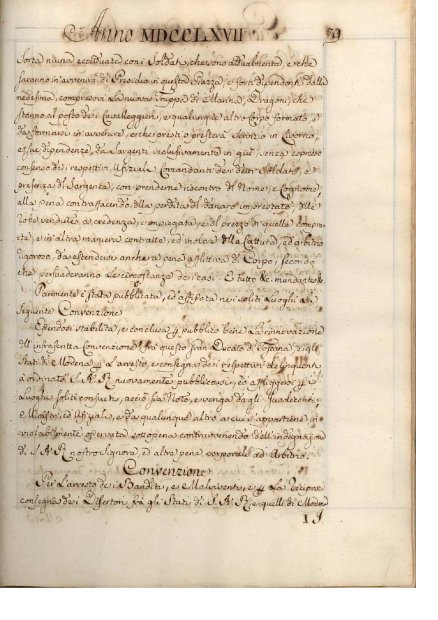 Anno MDCCLXVII 79
sorta niuna eccettuata con i Soldati, che sono attualmente, e che
saranno in avvenire di Presidio in questa Piazza, e forti dipendenti dalla
medesima, compresovi la nuova Truppa di Marina, Dragoni, che
stanno al posto dei Cavalleggieri, e qualunque altro Corpo formato, o
da formarsi in avvenire, e che presti, o presterà servizio in Livorno,
e sue dipendenze, da Sargenti inclusivamente in giù, senza espresso
consenso dei respettivi Ufiziali Comandanti dei detti Soldati, e
presenza del Sargente, con prenderne riscontro del Nome, e Cognome,
alla pena contrafacendo della perdita del danaro imprestato, delle
Robe vendute a credenza, impegnate, e del prezzo di quelle comprate,
e in altra maniera contratte, ed inoltre della Cattura, ed arbitrio
rigoroso, da estendersi anche a pena afflittiva di Corpo, secondo
che persuaderanno le circostanze dei casi. E tutto &c. mandantes &c.
Parimente è stata pubblicata, ed affissata nei soliti Luoghi la
seguente Convenzione
Essendosi stabilita, e conclusa per pubblico bene la rinnovazione
dell'infrascritta Convenzione fra questo Gran Ducato di Toscana, e gli
Stati di Modena per l'arresto, e consegna dei respettivi delinquenti
à ordinato S. A. R. nuovamente pubblicarsi, ed affiggersi per i
Luoghi soliti consueti, acciò sia noto, e venga dagli Jusdicenti,
e Ministri, ed Ufiziali, e da qualunque altro a cui s'appartiene in
violabilmente osservata sotto pena contravvenendo dell'indegnazione
di S. A. R. nostro Signore, ed altre pene corporali ad Arbitrio.
Convenzione
Per l'arresto dei Banditi, e Malviventi, e per la reciproca
consegna dei Disertori fra gli Stati di S. A. R. e quelli di Modena